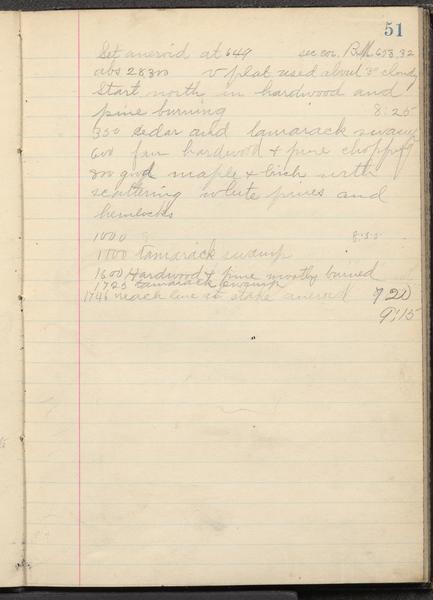 51
Set aneroid at 649 sec cor. B.M. 653.32
abs 28300 v flat used about 3° cloudy
Start north in hardwood and
pine burning 8:25
350 sedar and tamarack swamp
600 fair hardwood & pine chopping
800 good maple & birch with
scattering white pines and
hemlocks
1000 8:35
1100 tamarack swamp
1600 Hardwood & pine mostly burned
1725 tamarack swamp
1746 reach line at stake aneroid 720
9:15